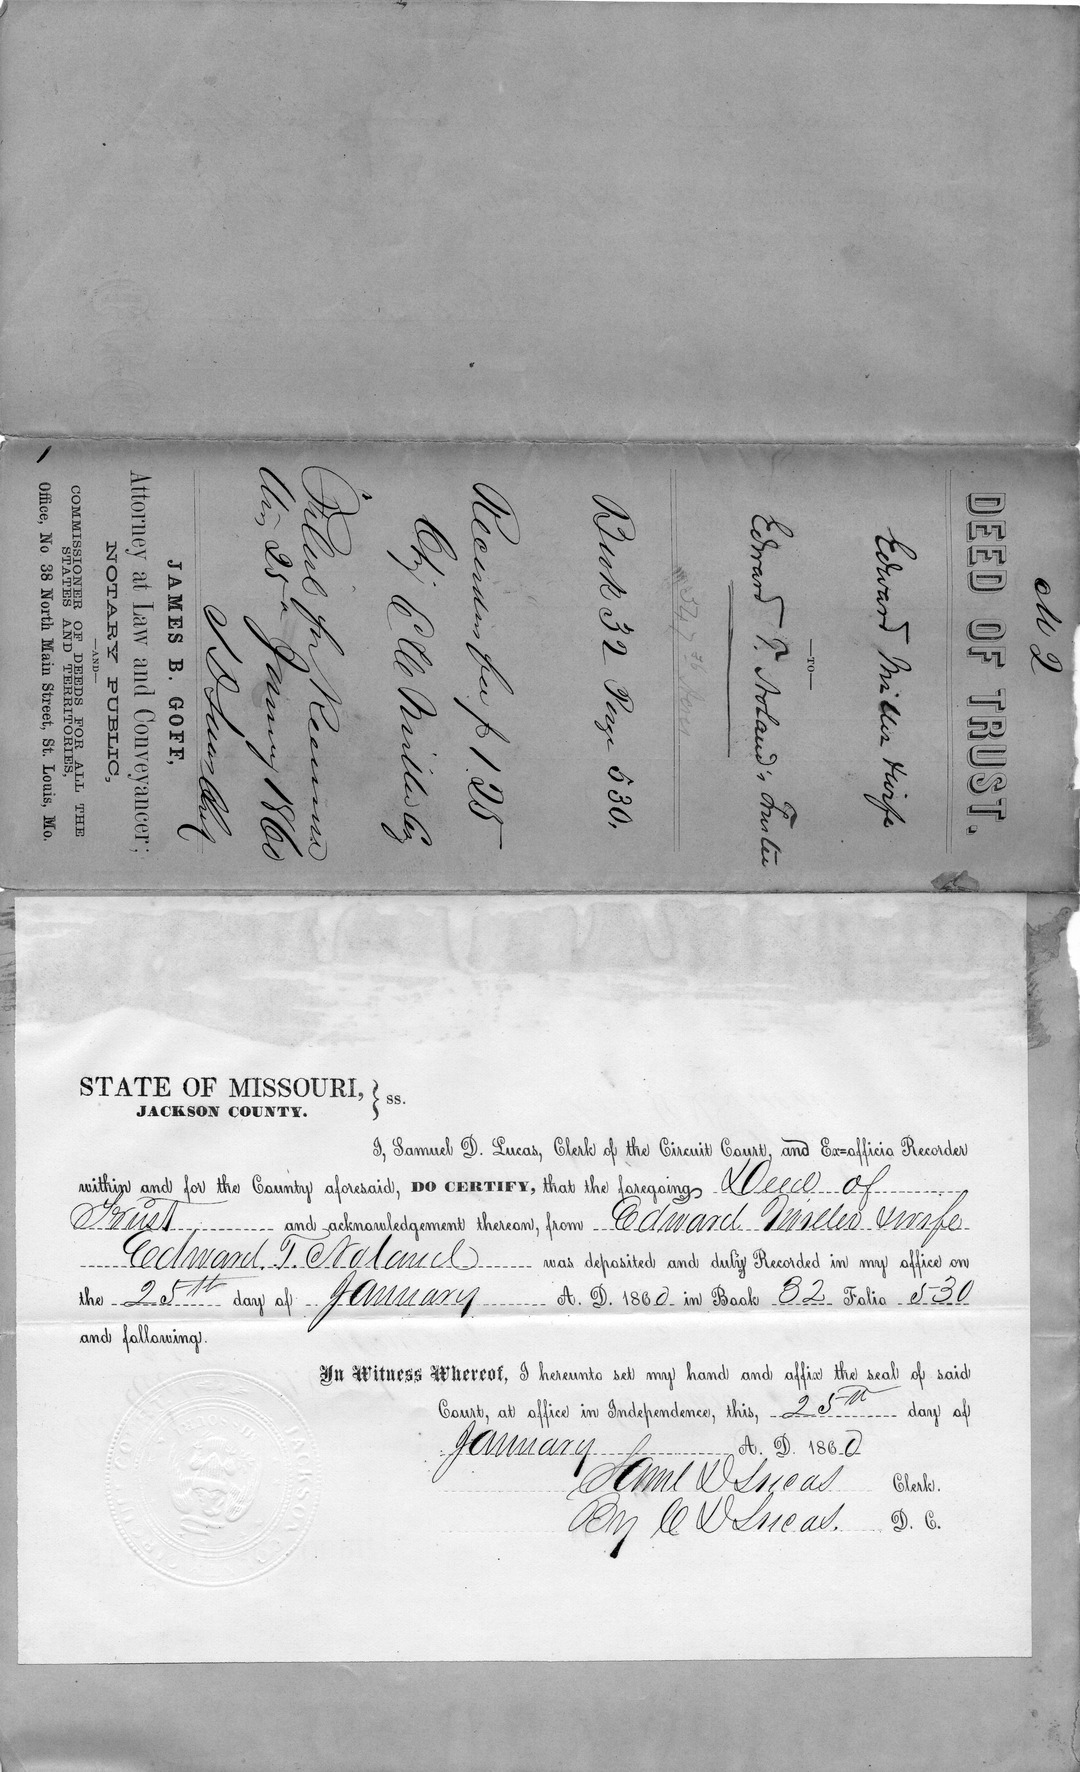 No 2
DEED OF TRUST.
Edward Miller & wife
—TO—
Edward T. Noland, Trustee
Book 32 Page 530.
Recording fee $1.25
Chg. Miller
Filed for Record
this 25th January 1860
S D Lucas Clerk
JAMES B. GOFF,
Attorney at Law and Conveyancer;
NOTARY PUBLIC,
—AND—
COMMISSIONER OF DEEDS FOR ALL THE
STATES AND TERRITORIES,
Office, No 38 North Main Street, St. Louis, Mo.
STATE OF MISSOURI, } ss.
JACKSON COUNTY.
I, Samuel D. Lucas, Clerk of the Circuit Court, and Ex=officio Recorder
within and for the County aforesaid, DO CERTIFY, that the foregoing Deed of
Trust and acknowledgement thereon, from Edward Miller & wife
Edward T. Noland was deposited and duly Recorded in my office on
the 25th day of January A. D. 1860 in Book 32 Folio 530
and following.
In Witness Whereof, I hereunto set my hand and affix the seal of said
Court, at office in Independence, this, 25th day of
January A. D. 1860
Saml D Lucas Clerk.
By C D Lucas. D. C.